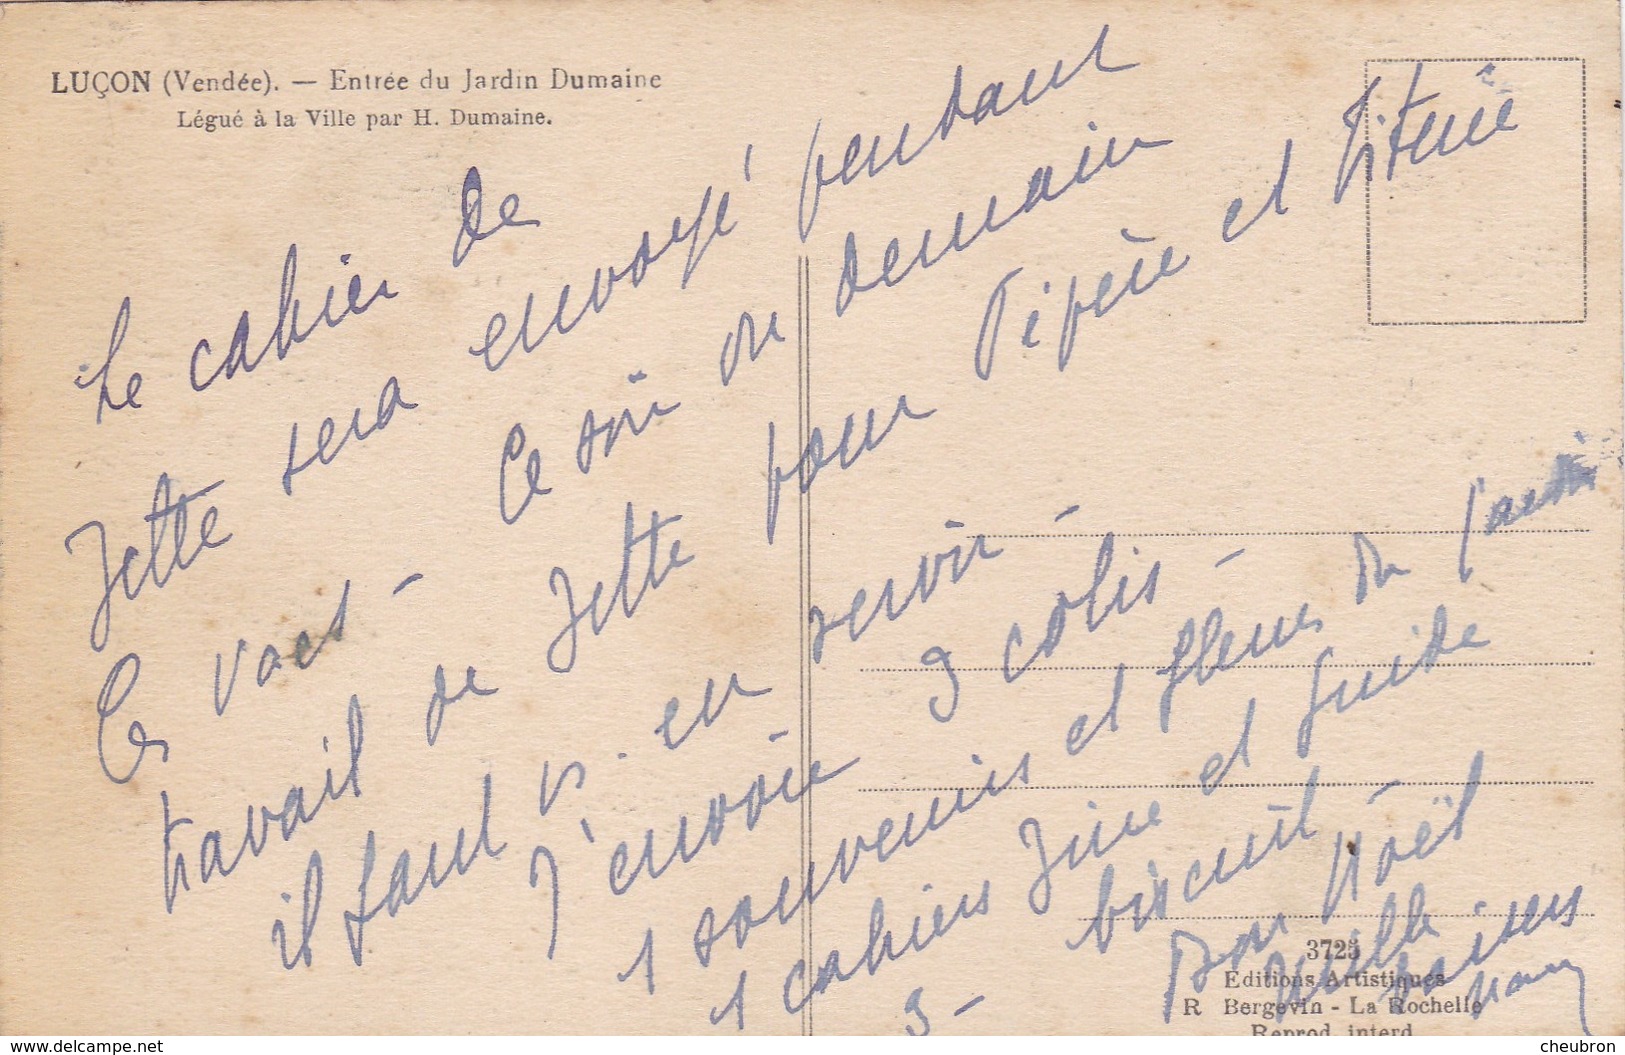 LUÇON (Vendée). — Entrée du Jardin Dumaine
Légué à la Ville par H. Dumaine.
Le cahier de
Jette sera envoyé pendant
Ces vacs - Ce soir ou demain
travail de Jette pour Pépère et Titine
il faut en servir -
J'envoie 3 colis -
1 souvenirs et fleurs du
1 cahiers Jine et Guide
3 - biscuit -
Bon Noël
Mille baisers
3725
Editions Artistiques
R Bergevin - La Rochelle
Reprod. interd.
www.delcampe.net
cheubron